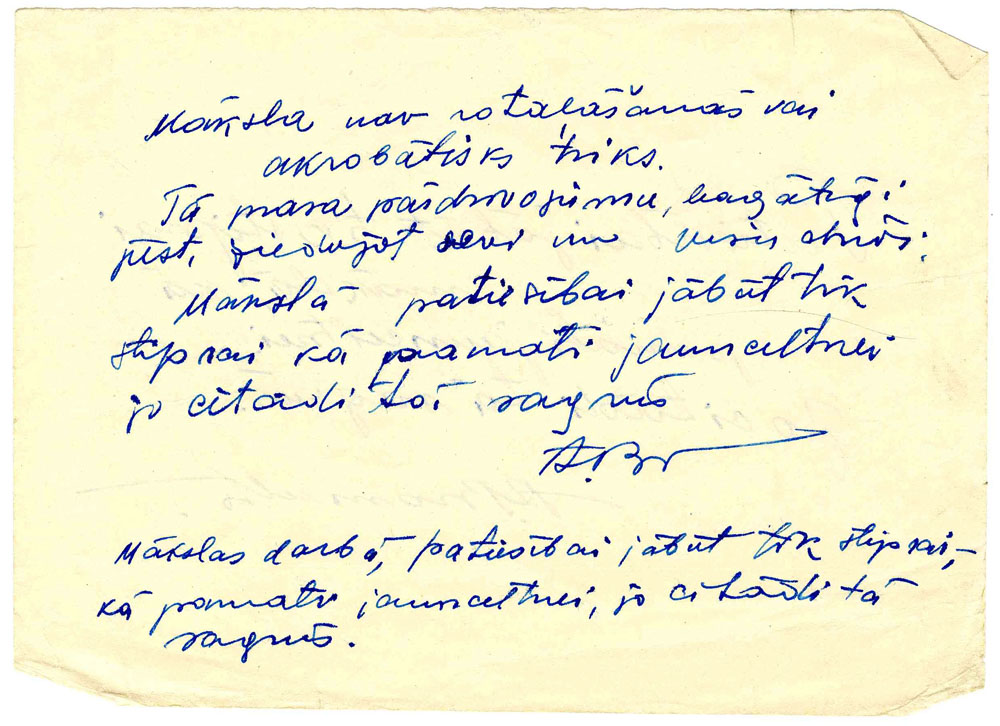 Māksla nav rotaļāšanās vai
akrobātisks triks.
Tā prasa pārdzīvojumu, bagātīgi
just, ziedojot sevi un visu dvēseli.
Mākslā patiesībai jābūt tik
stiprai kā pamati jaunceltnei
jo citādi tā sagrūs
Mākslas darbā, patiesībai jābūt tik stiprai,-
kā pamati jaunceltnei, jo citādi tā
sagrūs.